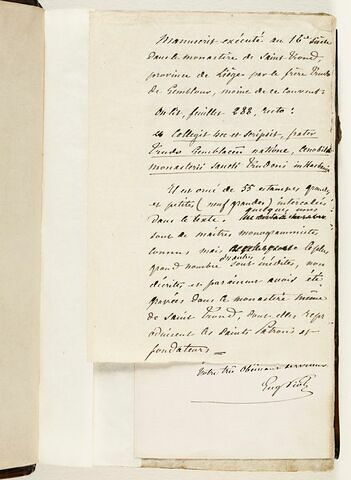 Manuscrit exécuté au 16e siècle
dans le monastère de Saint Trond,
province de Liège par le frère Trudo
de Gembloux, moine de ce couvent.
On lit, feuillet 288, recto:
Collegit hec et scripsit, frater
Trudo Gemblacen natione, Cenobita
monasterii Sancti Trudonis in
Il est orné de 55 estampes grandes
et petites (neuf grandes) intercalées
dans le texte. quelques unes
sont de maîtres monogrammistes,
connus mais le plus
grand nombre sont inédites, non
décrites et paraissent avoir été
gravées dans le monastère même
de Saint Trond, dont elles repro
duisent les Saints Patrons et
fondateurs
Votre très obéissant serviteur
Eug Piot